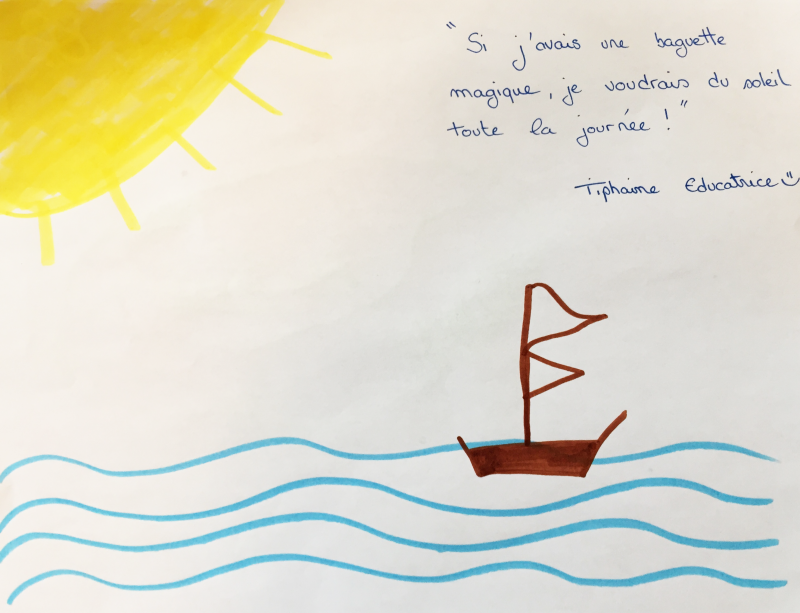 "Si j'avais une baguette
magique, je voudrais du soleil
toute la journée !"
Tiphaine Educatrice